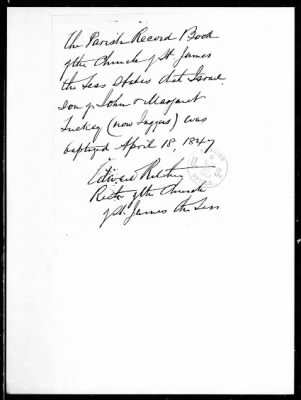 The Parish Record Book
of the Church of St James
the Less States that Israel
Son of John & Margaret
(now Taggers) was
baptized April 18, 1847
Edward
Rector of the Church
of St. James the Less